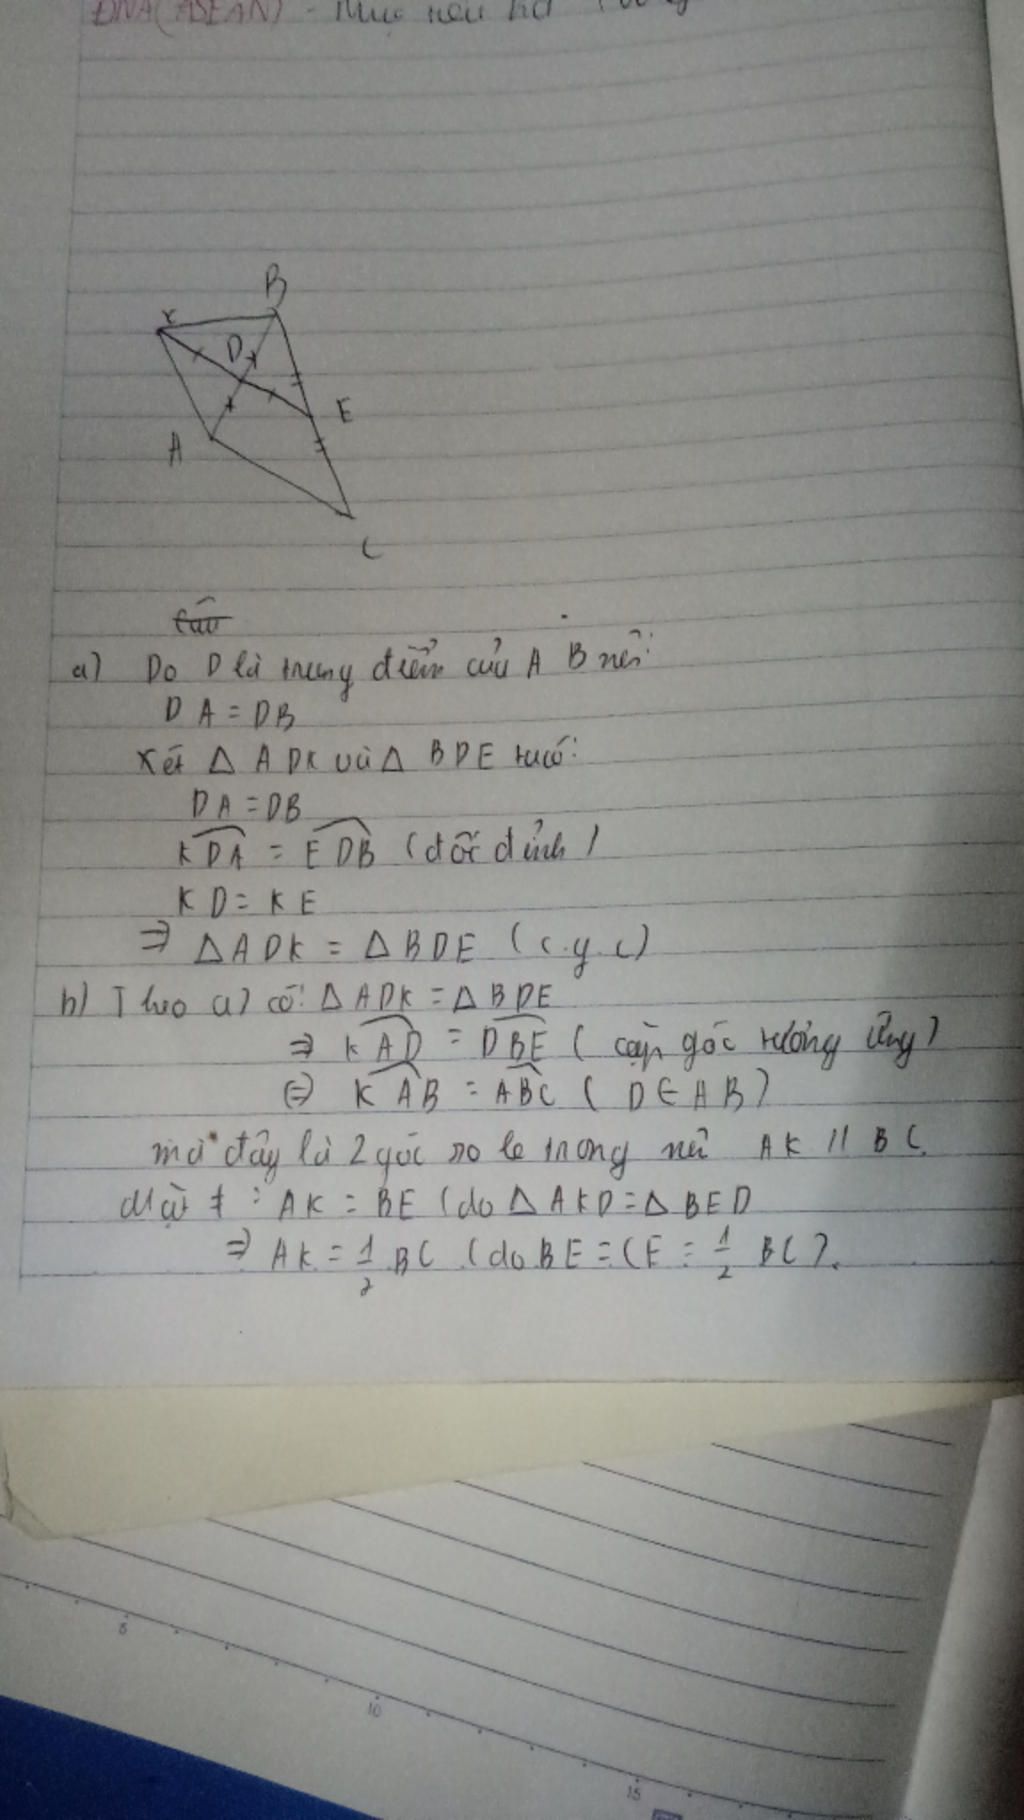 ĐNA (ASEAN) -
B
K
D
E
A
C
Câu
a) Do D là trung điểm của A B nên:
D A = DB
Xét △ ADK và △ BDE ta có:
DA = DB
KDA = EDB (đối đỉnh)
KD = KE
⇒ △ADK = △BDE (c.g.c)
b) Theo a) có: △ADK = △BDE
⇒ KAD = DBE ( cặp góc tương ứng)
⇔ KAB = ABC ( D ∈ AB)
mà đây là 2 góc so le trong nên AK // BC.
Mặt ≠ : AK = BE (do △AKD = △BED
⇒ AK = 1/2 BC (do BE = CE = 1/2 BC).
5
10
15